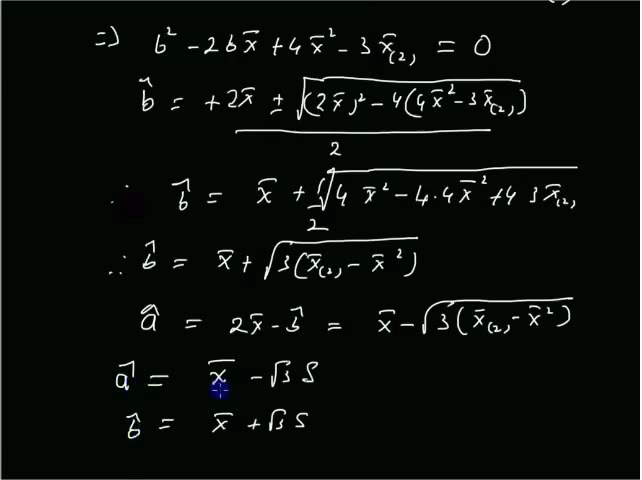 ⇒) b² - 2b x̄ + 4x̄² - 3x̄₍₂₎ = 0
b̂ = +2x̄ ± √((2x̄)² - 4(4x̄² - 3x̄₍₂₎)) / 2
∴ b̂ = x̄ + 1/2 √(4 x̄² - 4·4x̄² + 4 3 x̄₍₂₎)
∴ b̂ = x̄ + √(3(x̄₍₂₎ - x̄²))
â = 2x̄ - b̂ = x̄ - √(3(x̄₍₂₎ - x̄²))
â = x̄ - √3 S
b̂ = x̄ + √3 S